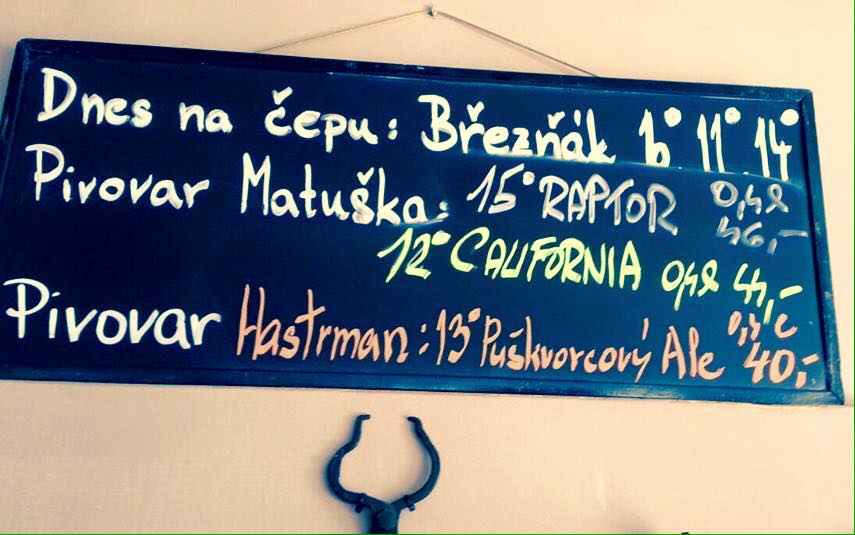 Dnes na čepu: Březňák 10° 11° 14°
Pivovar Matuška: 15° RAPTOR 0,4l 46,-
12° CALIFORNIA 0,4l 44,-
Pivovar Hastrman: 13° Puškvorcový Ale 40,-